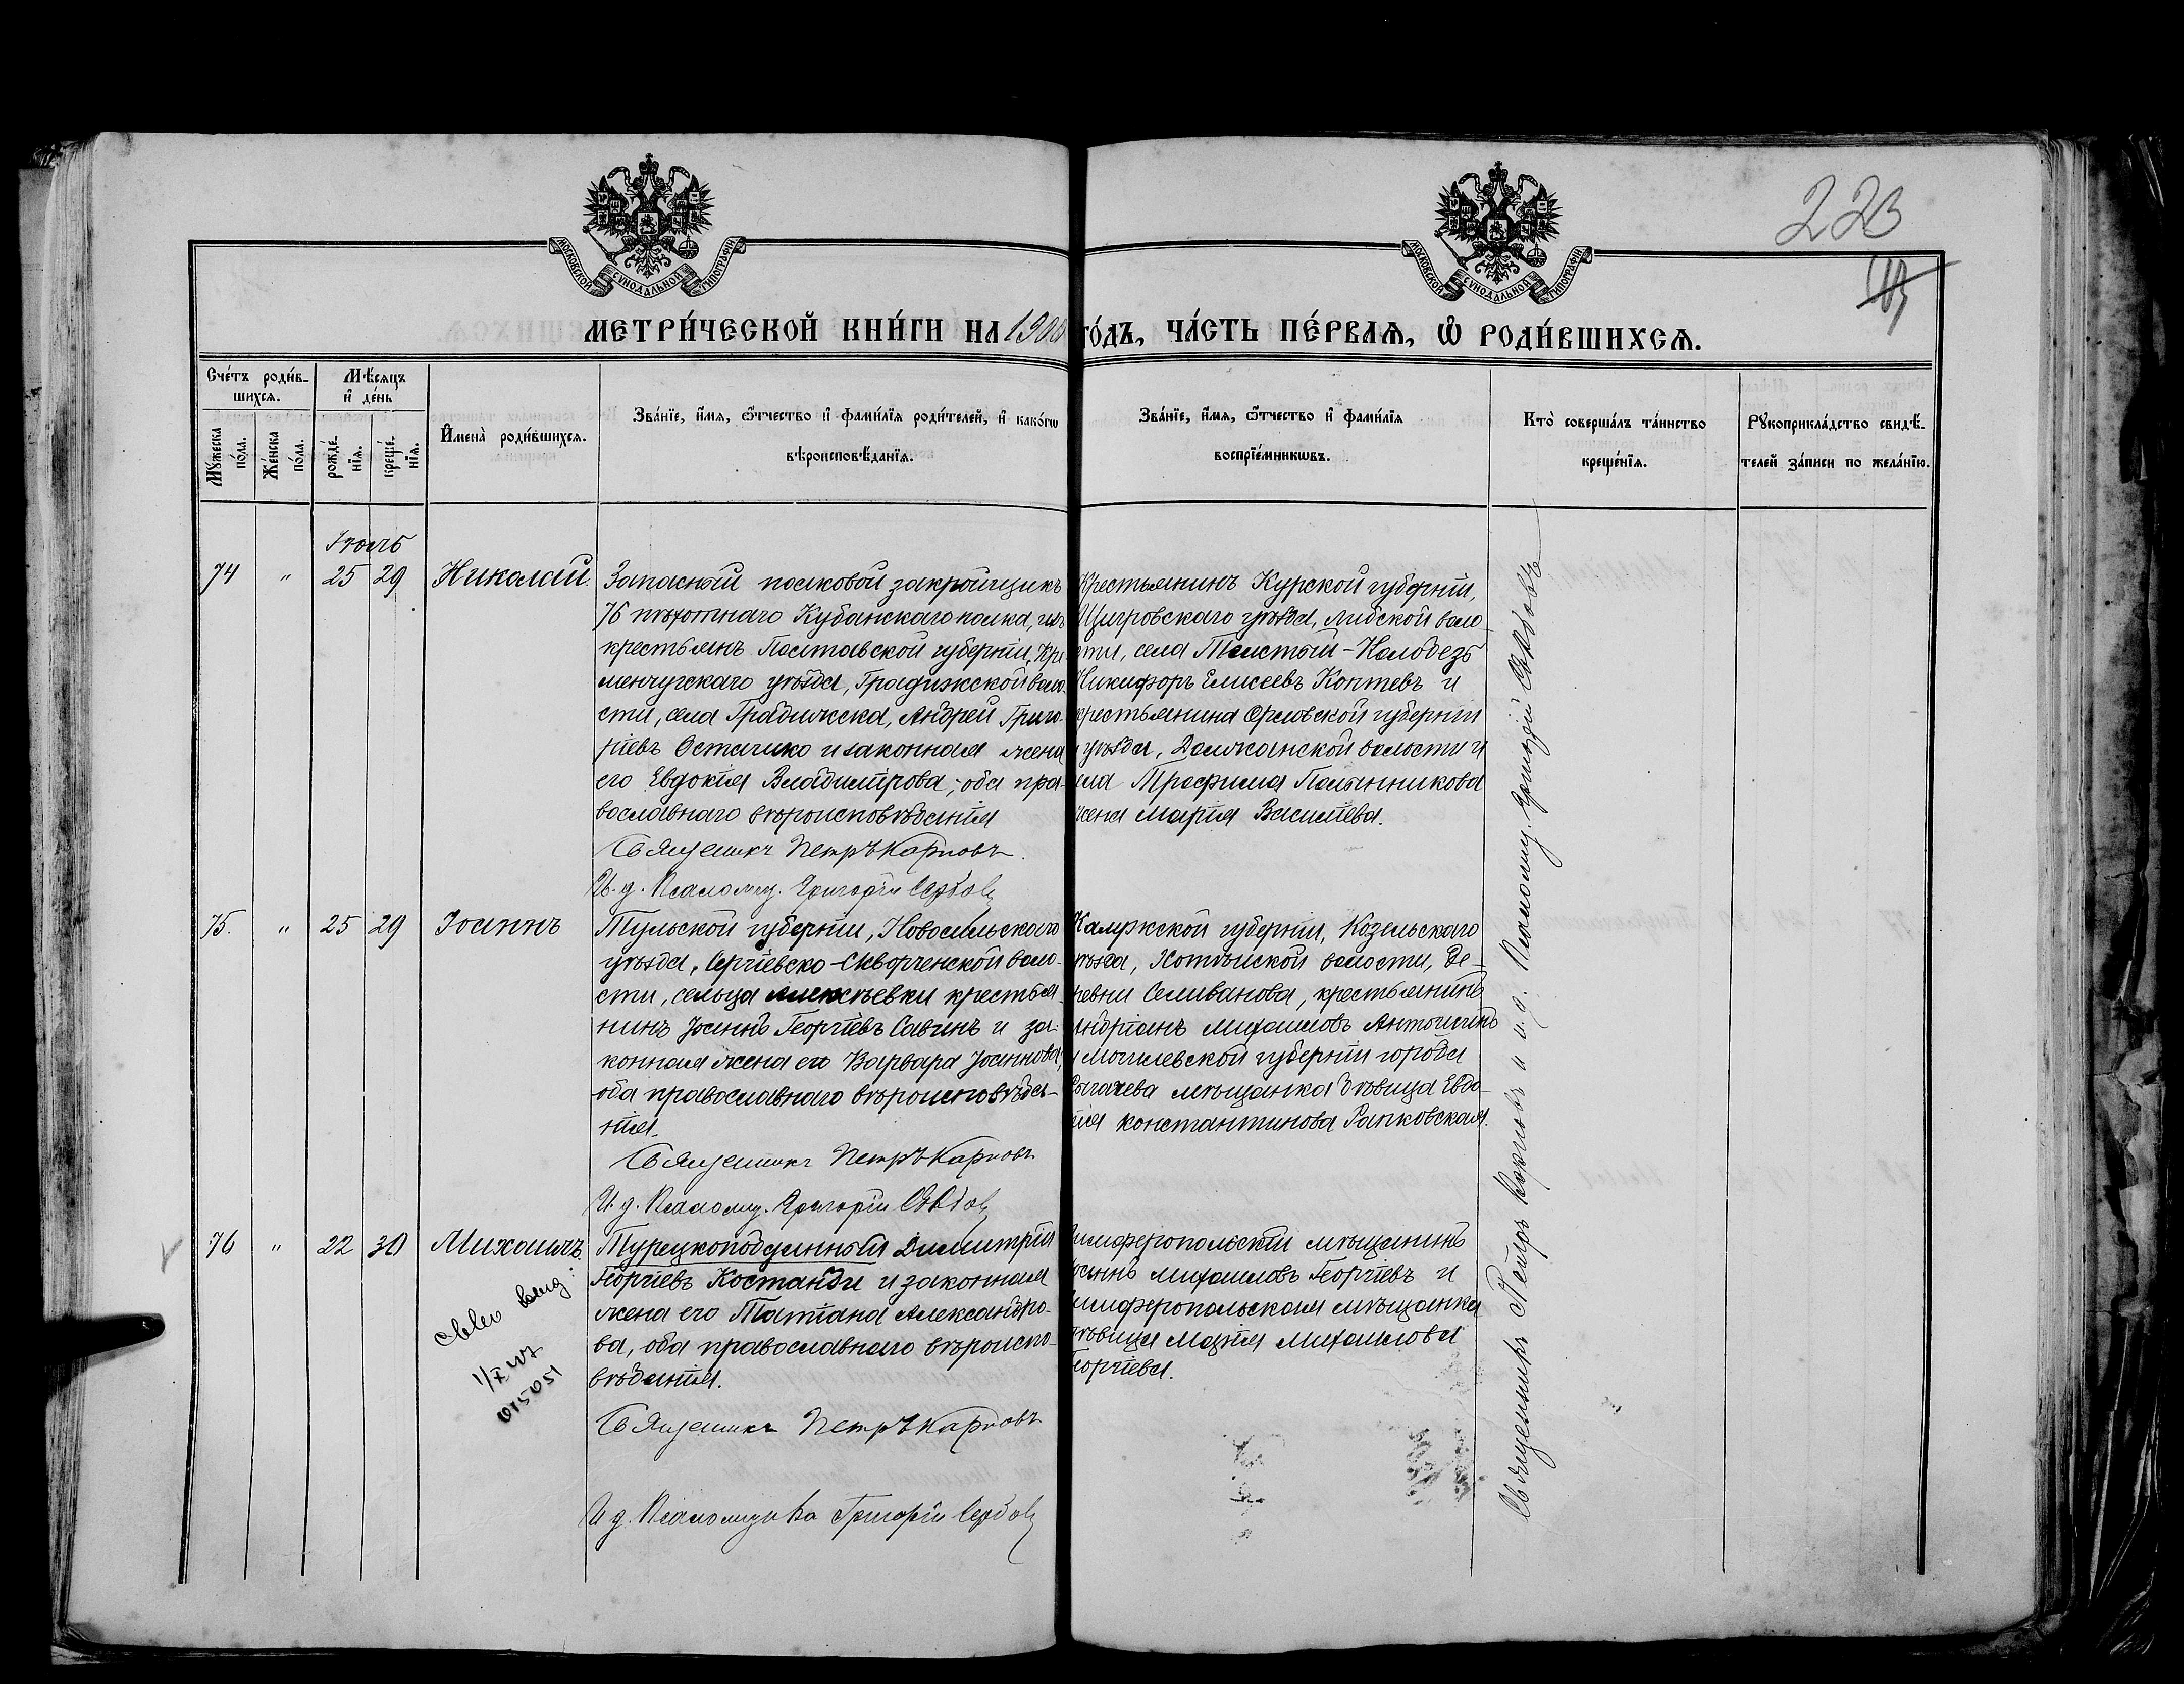 223
МОСКОВСКОЙ СУНОДАЛЬНОЙ ТИПОГРАФІИ
МОСКОВСКОЙ СУНОДАЛЬНОЙ ТИПОГРАФІИ
МЕТРИ́ЧЕСКОЙ КНИ́ГИ НА 1900 ГО́ДЪ, ЧА́СТЬ ПЕ́РВАѦ, Ѡ РОДИ́ВШИХСѦ.
Сче́тъ роди́в-
шихсѧ.
Мѣ́сѧцъ
и де́нь
Му́жеска по́ла.
Же́нска по́ла.
рожде́-
нїѧ.
креще́-
нїѧ.
Имена̀ роди́вшихсѧ.
Зва́нїе, и́мѧ, ѻ́тчество и фами́лїѧ роди́телей, и како́гѡ
вѣроисповѣ́данїѧ.
Зва́нїе, и́мѧ, ѻ́тчество и фами́лїѧ
воспрїе́мникѡвъ.
Кто̀ соверша́лъ та́инство
креще́нїѧ.
Рꙋкоприкла́дство свидѣ́-
телей за́писи по жела́нїю.
Іюль
74 " 25 29 Николай
Запасный полковой закройщикъ
76 пѣхотнаго Кубанскаго полка, изъ
крестьянъ Полтавской губерніи, Кре
менчугскаго уѣзда, Градижской воло-
сти, села Градижска, Андрей Григо-
ріевъ Остапико и законная жена
его Евдокія Владимірова, оба пра-
вославнаго вѣроисповѣданія
Священникъ Петръ Карповъ.
И. д. Псаломщ. Григорій Сербовъ
Крестьянинъ Курской губерніи,
Щигровскаго уѣзда, Липской воло
сти, села Толстый-Колодезь
Никифоръ Елисеевъ Коптевъ и
крестьянина Орловской губерніи
и уѣзда, Должанской волости и
села Трофима Полынникова
жена Марія Василіева.
75. " 25 29 Іоаннъ
Тульской губерніи, Новосильскаго
уѣзда, Сергіевско-Скворченской воло-
сти, сельца Алексѣевки крестья-
нинъ Іоаннъ Георгіевъ Савинъ и за-
конная жена его Варвара Іоаннова,
оба православнаго вѣроисповѣда-
нія.
Священникъ Петръ Карповъ
И. д. Псаломщ. Григорій Сербовъ
Калужской губерніи, Козельскаго
уѣзда, Хотьнской волости, де-
ревни Селиванова, крестьянинъ
Андріанъ Михаиловъ Антошинъ
и Могилевской губерніи города
Рогачева мѣщанка дѣвица Евдо-
кія Константинова Рапковская.
76 " 22 30 Михаилъ.
Турецкоподданный Димитрій
Георгіевъ Костанди и законная
жена его Татіана Александро-
ва, оба православнаго вѣроиспо-
вѣданія.
Священникъ Петръ Карповъ
И. д. Псаломщика Григорій Сербовъ
Симферопольскій мѣщанинъ
Іоаннъ Михаиловъ Георгіевъ и
Симферопольская мѣщанка
дѣвица Марія Михаилова
Георгіева.
Священникъ Петръ Карповъ и и. д. Псаломщ. Григорій Сербовъ
015051